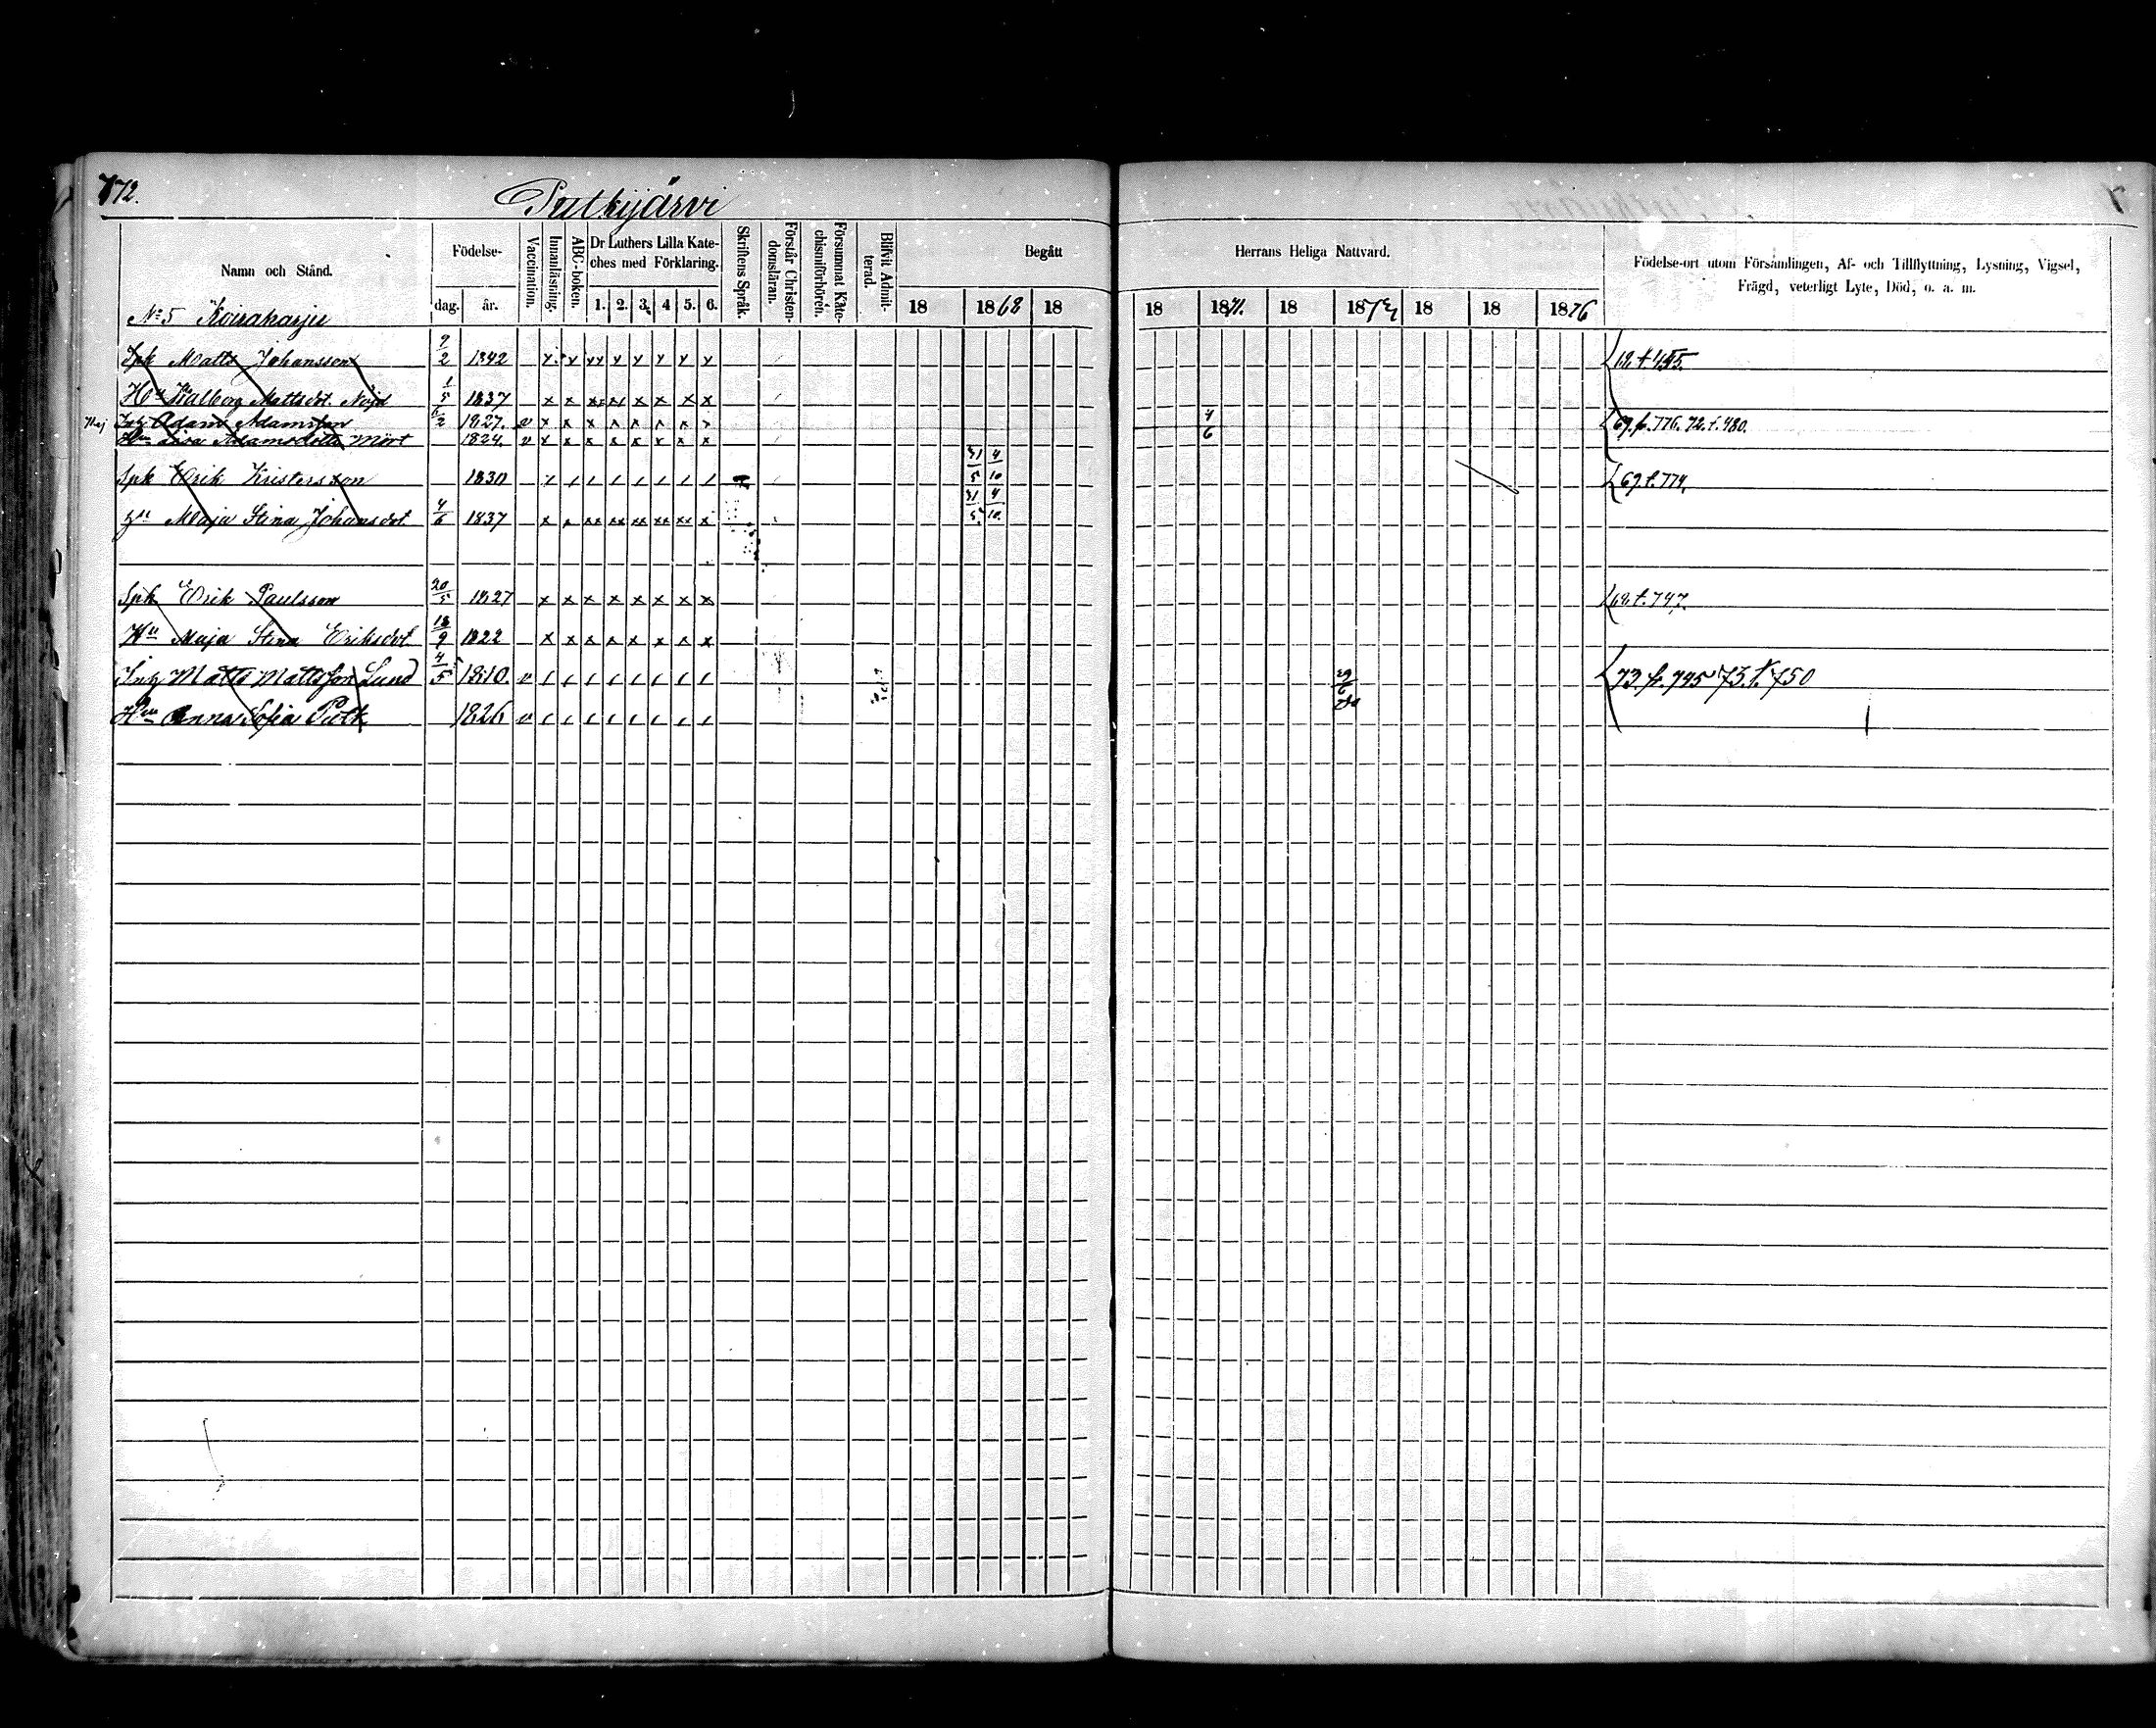 772.
Putkijärvi
Namn och Stånd.
Födelse-
dag.
år.
Vaccination.
Innanläsning.
ABC-boken.
Dr Luthers Lilla Kate-
ches med Förklaring.
1. 2. 3. 4 5. 6.
Skriftens Språk.
Förstår Christen-
domsläran.
Försummat Kate-
chismiförhören.
Blifvit Admit-
terad.
Begått
18 1868 18
Herrans Heliga Nattvard.
18 1871. 18 187 18 18 1876
Födelse-ort utom Församlingen, Af- och Tillflyttning, Lysning, Vigsel,
Frägd, veterligt Lyte, Död, o. a. m.
No 5 Koiraharju
Spk Matts Johansson 9/2 1842 68. t. 455.
Hu Walborg Mattsdot. Nöjd 1/5 1837
Inh Adam Adamsson 1827. v 4/6 69. fr. 776. 72. t. 480.
Hu Lisa Adamsdotter Mört 1824. v
Spk Erik Kristersson 1830 31/5 4/10 69. t. 774.
Hu Maja Stina Johansdot. 4/6 1837 31/5 4/10.
Spk Erik Paulsson 20/5 1827 68. t. 747.
Hu Maja Stina Eriksdot. 18/9 1822
Inh Matts Mattsson Lund 4/5 1810. v 73. fr. 745 73. t. 750
Hu Anna Sofia Putk 1826 v do